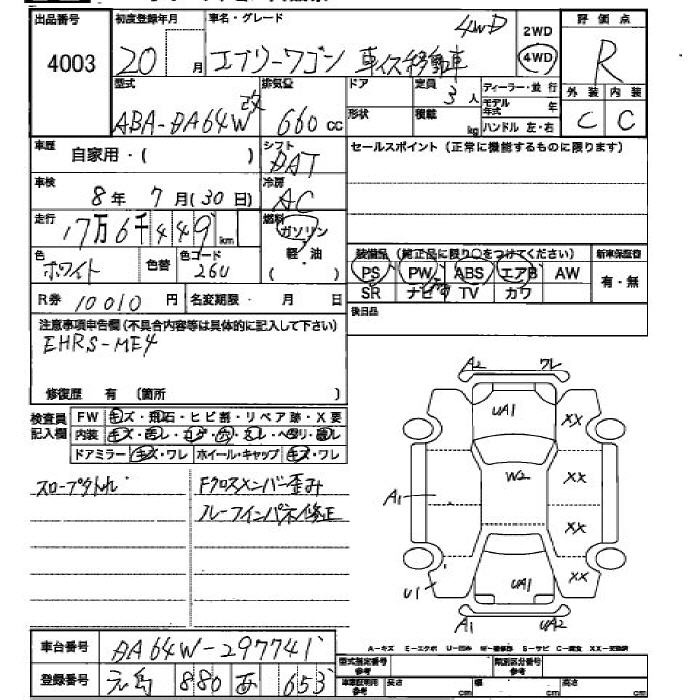 出品番号 初度登録年月 車名・グレード 4WD 2WD 評価点
4003 20 月 エブリーワゴン 車イス移動車 4WD R
型式 改 排気量 ドア 定員 3人 ディーラー・並行 外装 内装
ABA-DA64W 660cc 形状 積載 kg モデル年式 年 C C
ハンドル 左・右
車歴 自家用・( ) シフト DAT セールスポイント(正常に機能するものに限ります)
車検 8年 7月(30日) 冷房 AC
走行 17万6千449km 燃料 ガソリン
軽油
色 ホワイト 色替 色コード 26U ( ) 装備品(純正品に限り○をつけてください) 新車保証書
PS PW ABS エアB AW 有・無
R券 10010円 名変期限・ 月 日 SR ナビ TV カワ
後日品
注意事項申告欄(不具合内容等は具体的に記入して下さい)
EHRS-ME4
修復歴 有 (箇所 )
検査員記入欄 FW キズ・飛石・ヒビ割・リペア跡・X要
内装
ドアミラー キズ・ワレ ホイール・キャップ キズ・ワレ
スロープタトれ Fクロスメンバー歪み
ルーフインパネル修正
A2 ワレ
UA1 XX
W2 XX
A1 XX
U1 UA1 XX
A1 UA2
A-キズ E-エクボ U-凹み W-補修跡 S-サビ C-腐食 XX-交換済
車台番号 DA64W-297741
登録番号 880 あ 653
型式指定番号 参考 類別区分番号 参考
車庫証明用 参考 長さ cm 幅 cm 高さ cm